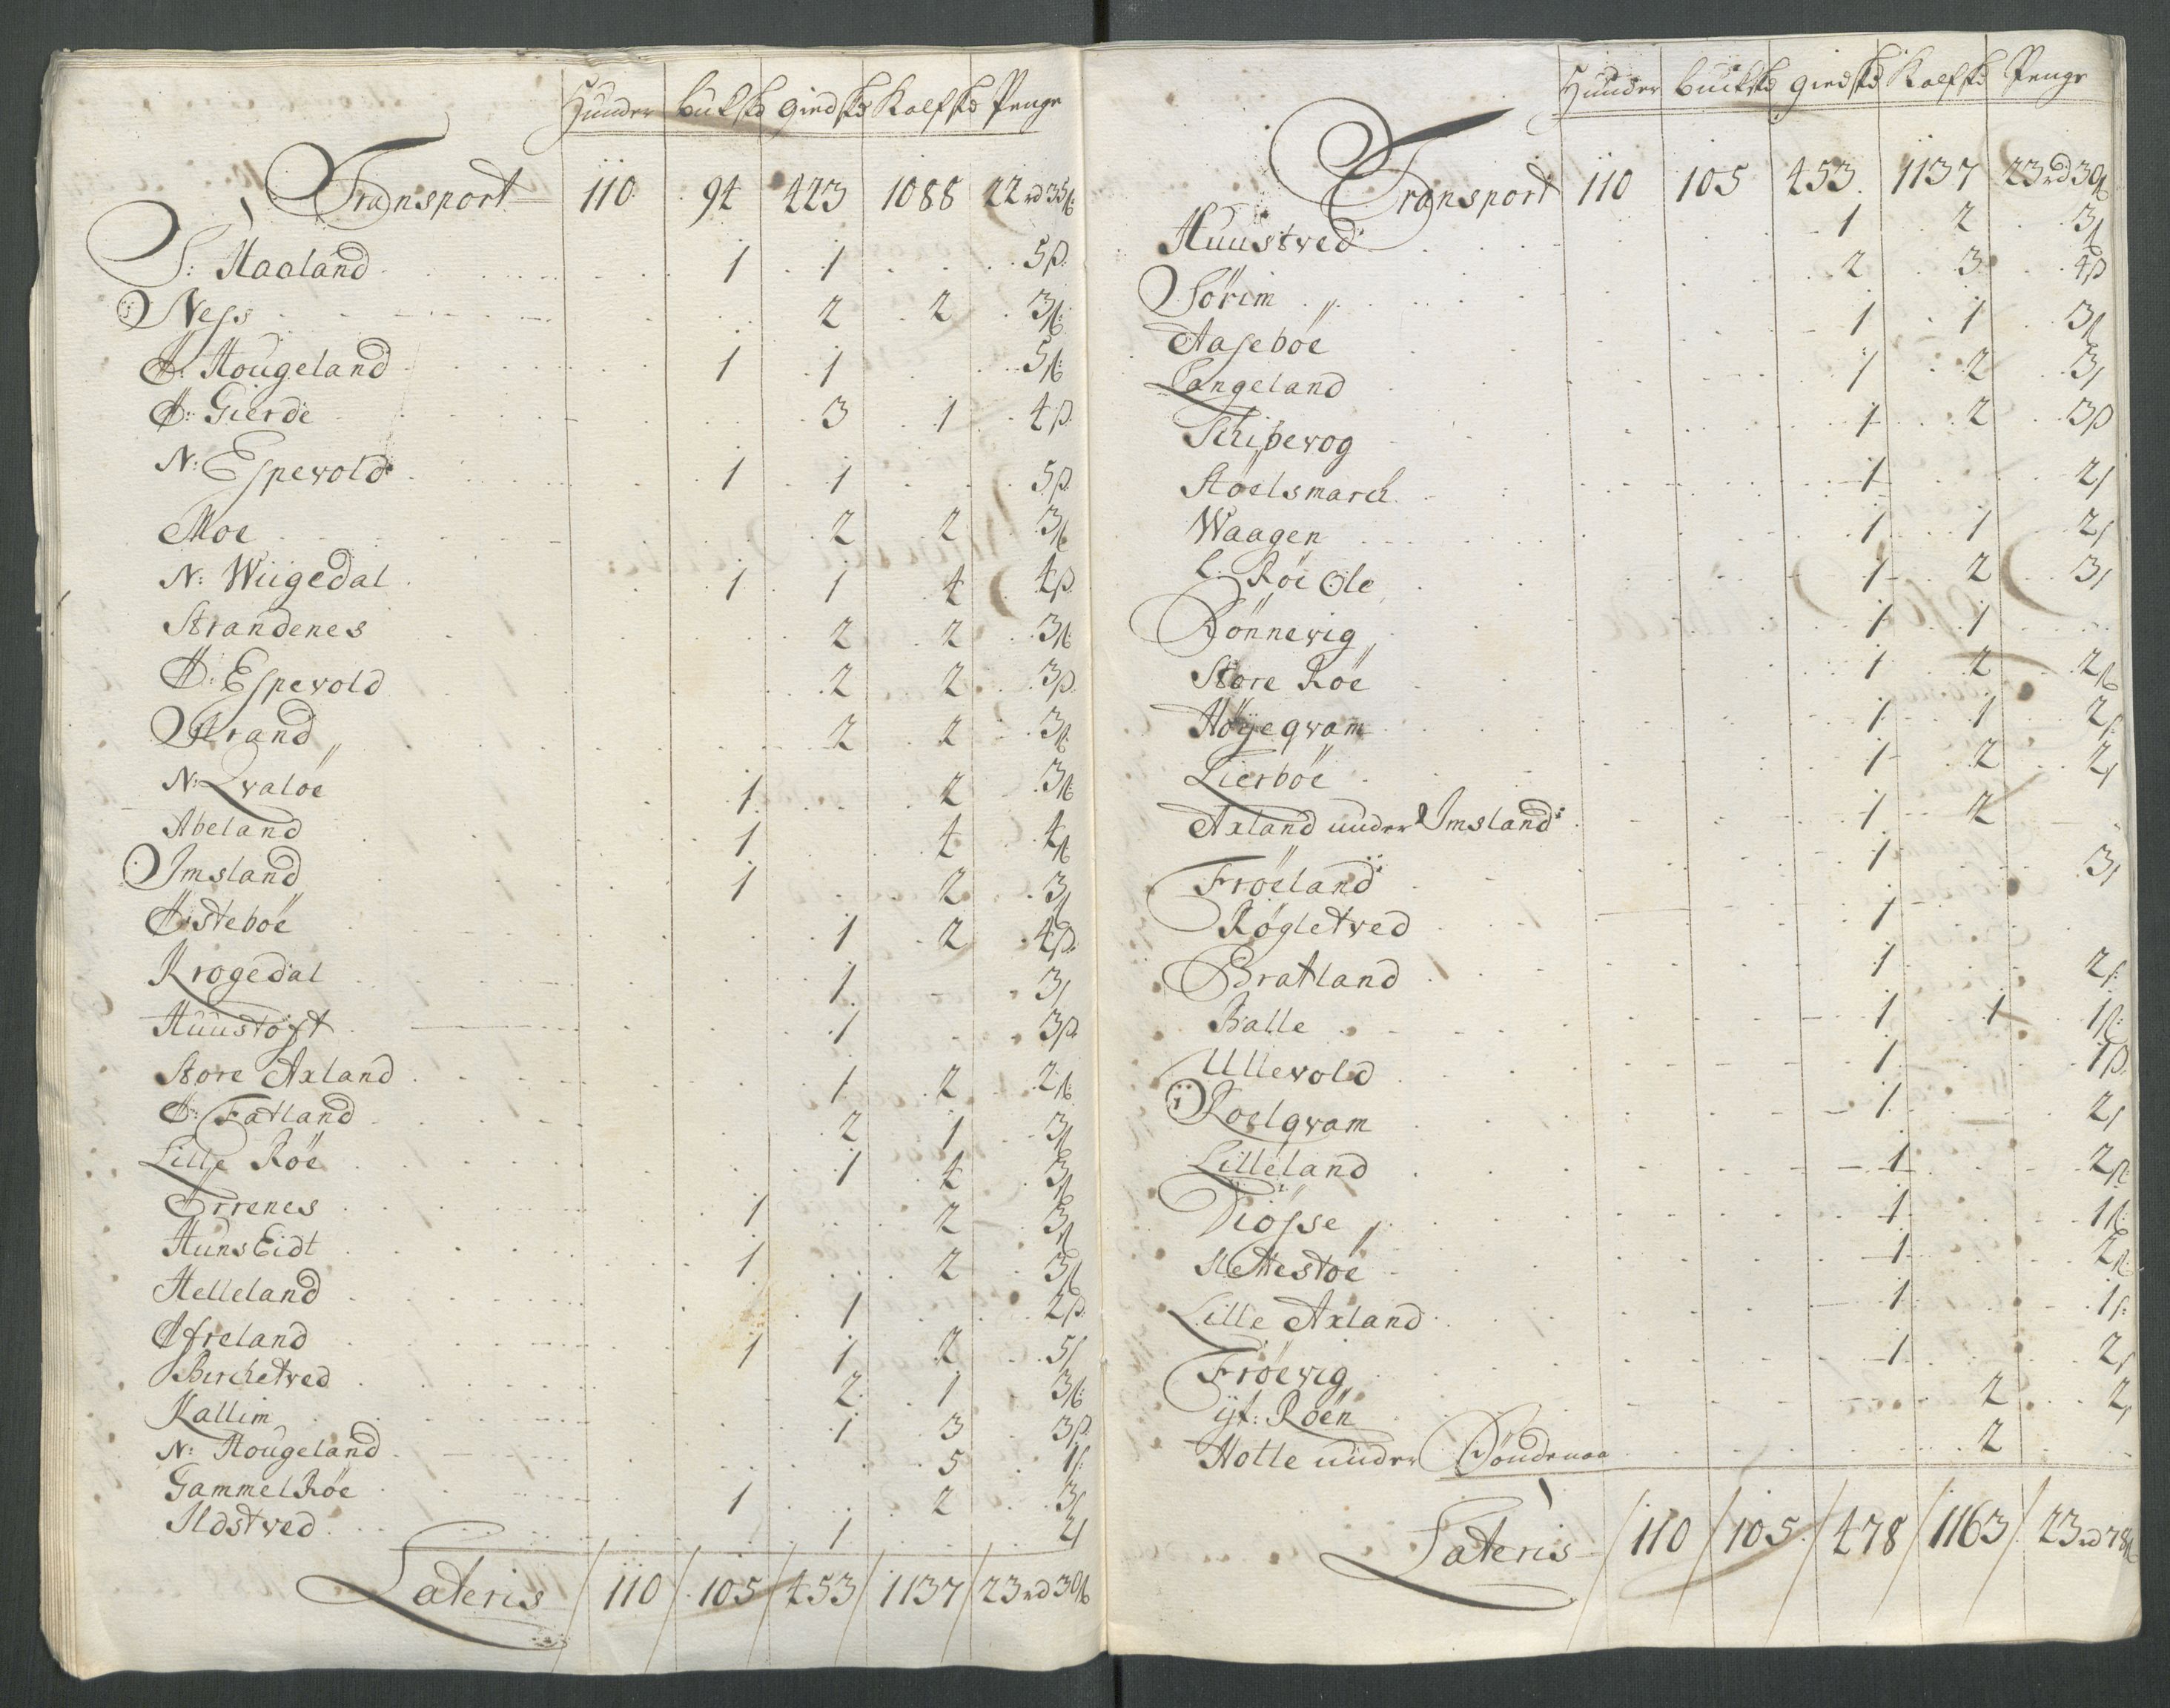 Huuder bukskd giedskd Kalfskd Penge
Transport 110 94 423 1088 22rd 35ß
S: Haaland 1 1 5ß
Ness 2 2 3ß
Ø: Hougeland 1 1 5ß
Ø: Gierde 3 1 4ß
N: Espevold 1 1 5ß
Moe 2 2 3ß
N: Wiigedal 1 1 4 4ß
Strandenes 2 2 3ß
Ø: Espevold 2 2 3ß
Strand 2 2 3ß
N: Qvaløe 1 2 3ß
Abeland 1 4 4ß
Imsland 1 2 3ß
Østebøe 1 2 4ß
Krogedal 1 3ß
Huustoft 1 3ß
Store Axland 1 2 2ß
Ø: Fatland 2 1 3ß
Lille Röe 1 4 3ß
Ørrenes 1 2 3ß
HunsEidt 1 2 3ß
Helleland 1 2ß
Øfreland 1 1 2 5ß
Birchetved 2 1 3ß
Kallim 1 3 3ß
N: Hougeland 5 1ß
Gammel Röe 1 2 3ß
Ildstved 1 2ß
Lateris 110 105 453 1137 23rd 30ß
Huuder buckskd giedskd Kalfskd Penge
Transport 110 105 453 1137 23rd 30ß
Huustved 1 2 3ß
Sörim 2 3 4ß
Aaseböe 1 1 3ß
Langeland 1 2 3ß
Schipevog 1 2 3ß
Stöelsmarch 1 2ß
Waagen 1 1 2ß
L: Röe Ole 1 2 3ß
Rönnevig 1 1
Store Röe 1 2 2ß
Höyeqvam 1 1 2ß
Lierböe 1 2 2ß
Axland under Imsland 1 2
Fröeland 1 3ß
Røgletved 1
Bratland 1 2ß
Balle 1 1 1ß
Ullevold 1 1ß
Roelqvam 1 2ß
Lilleland 1 2ß
Diösse 1 1ß
Slettestöe 1 2ß
Lille Axland 1 1ß
Fröevig 1 2ß
yt: Röen 2 2ß
Holle under Döndenaa 2
Lateris 110 105 478 1163 23rd 78ß